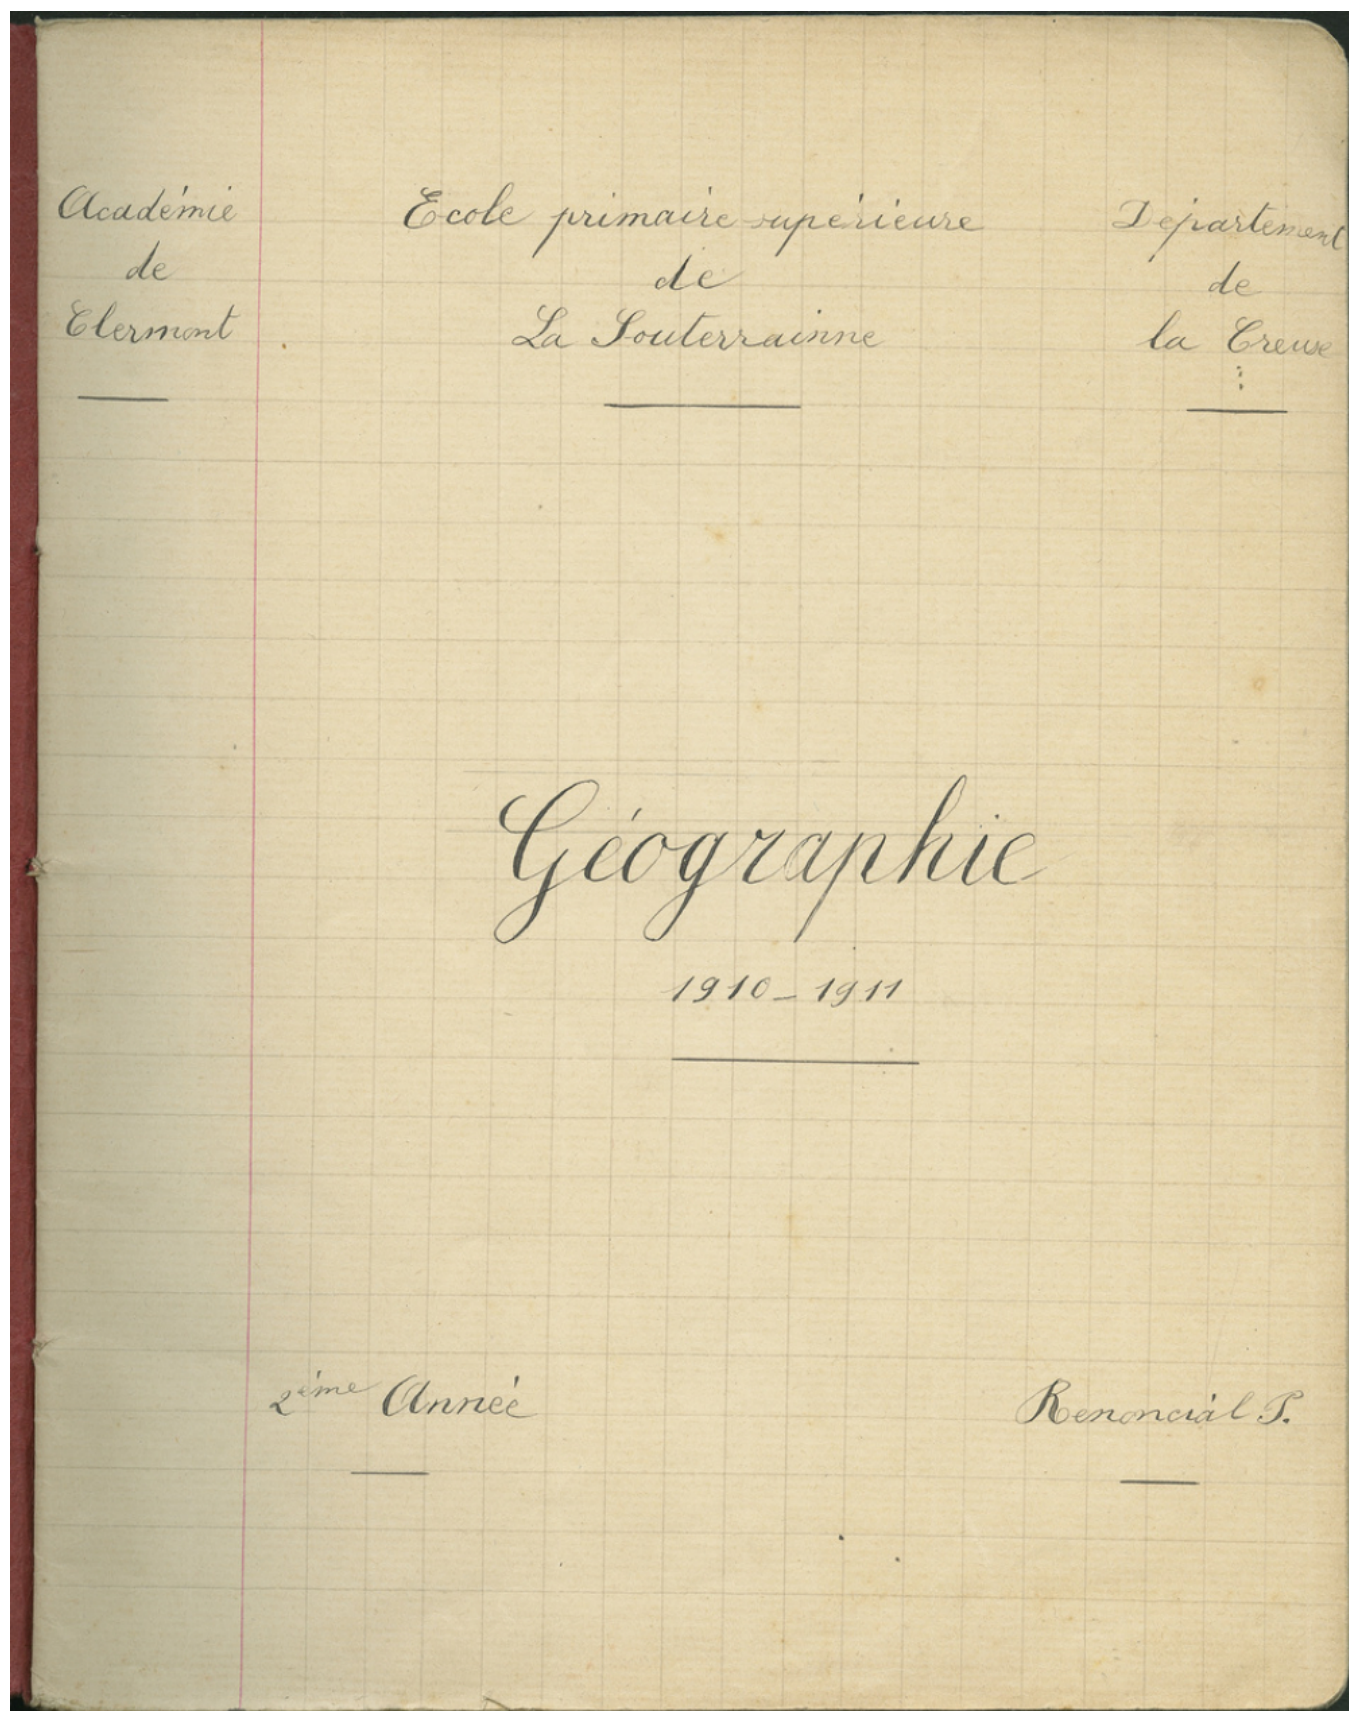 Académie
de
Clermont
Ecole primaire supérieure
de
La Souterrainne
Département
de
la Creuse
Géographie
1910-1911
2ème Année
Renoncial P.